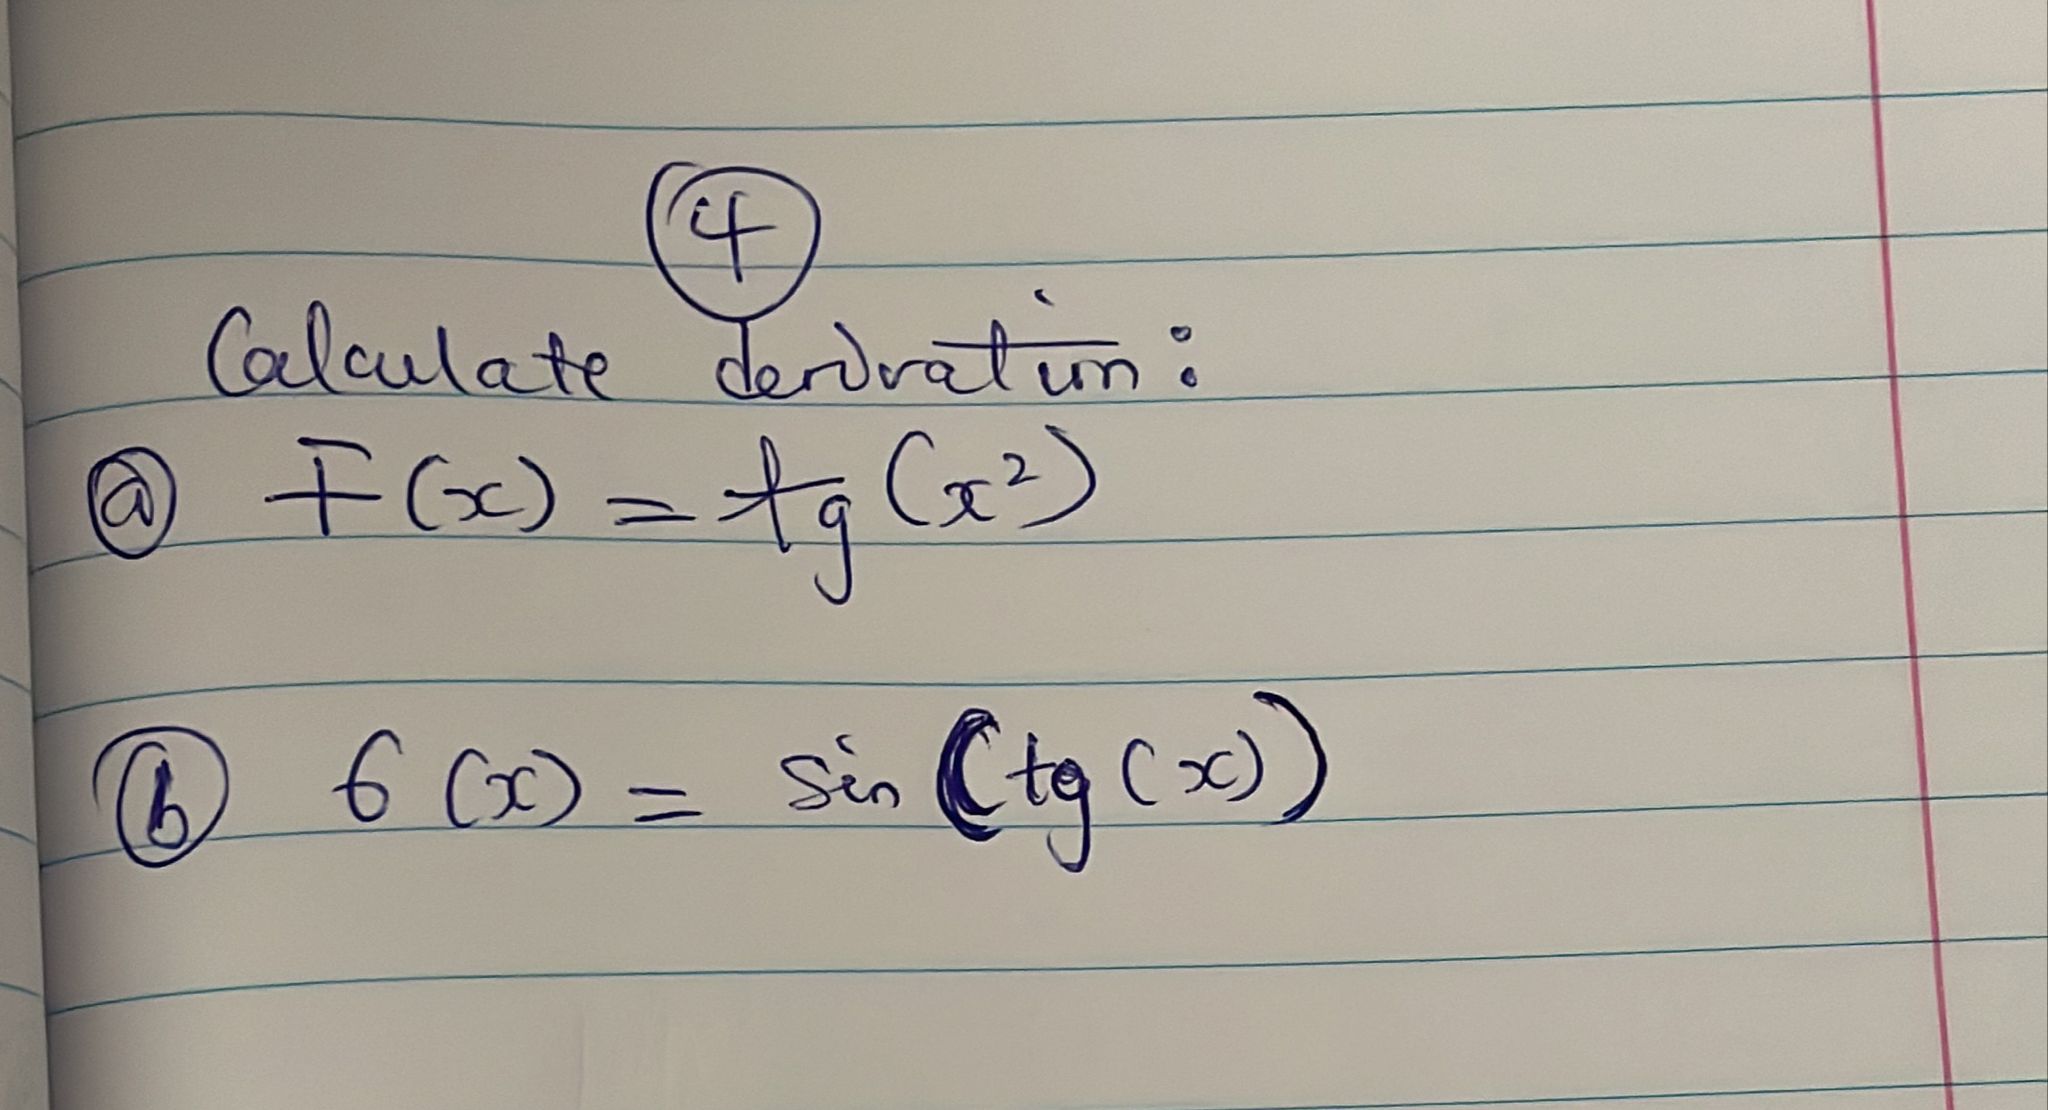 4
Calculate derivation:
a F(x) = tg(x²)
b G(x) = sin(tg(x))